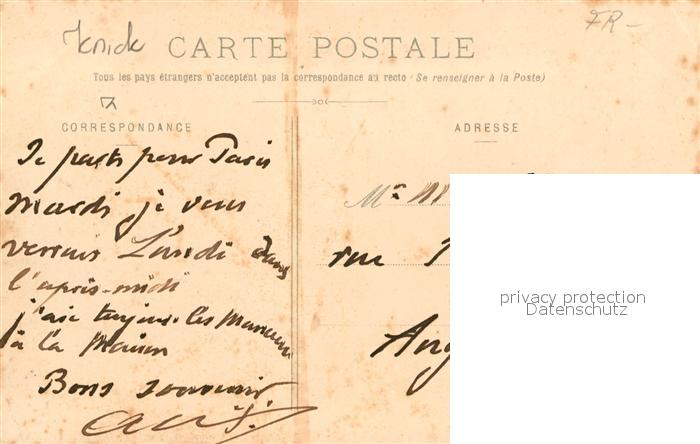 Knick
FR-
CARTE POSTALE
Tous les pays étrangers n'acceptent pas la correspondance au recto (Se renseigner à la Poste)
CORRESPONDANCE
ADRESSE
Je pars pour Paris
Mardi je vous
verrais Lundi dans
l'après-midi
j'ai toujours les
à la Maison
Bons souvenir
Mr M
rue
Ang
privacy protection
Datenschutz